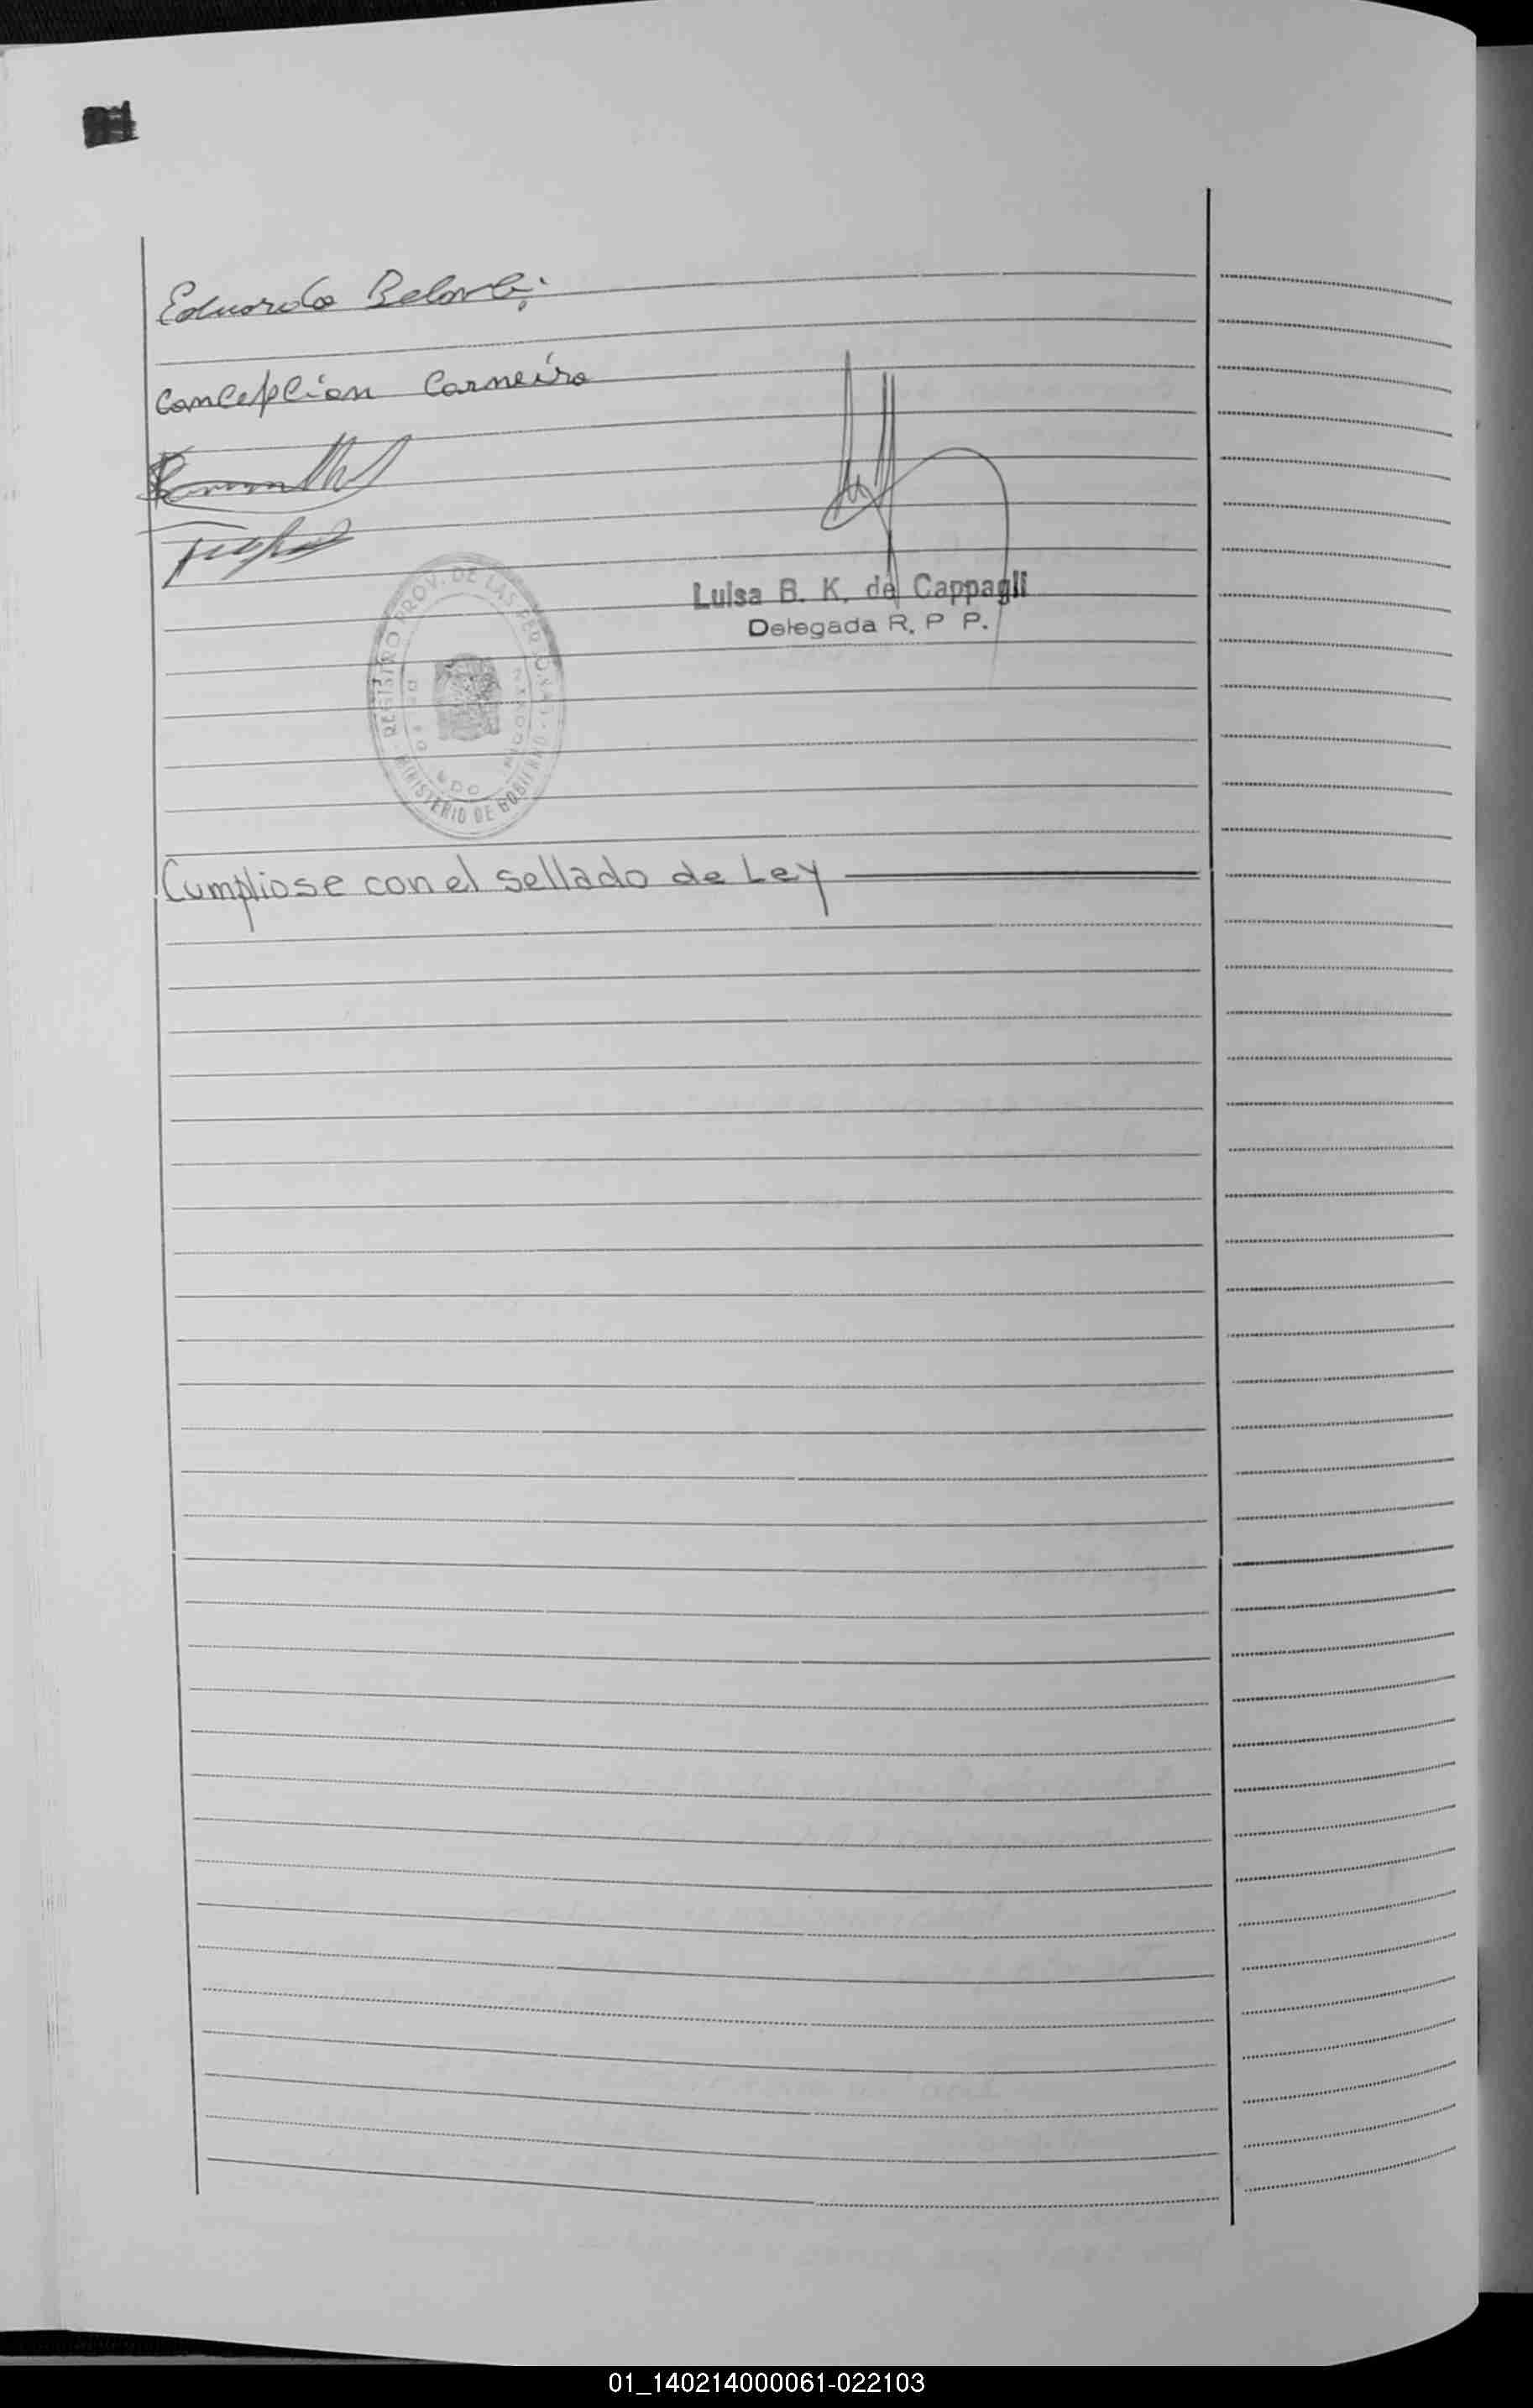 Eduardo
Concepcion Carneiro
Luisa B. K. de Cappagli
Delegada R. P P.
REGISTRO PROV. DE LAS PERSONAS
MINISTERIO DE GOBIERNO
Cumpliose con el sellado de Ley
01_140214000061-022103